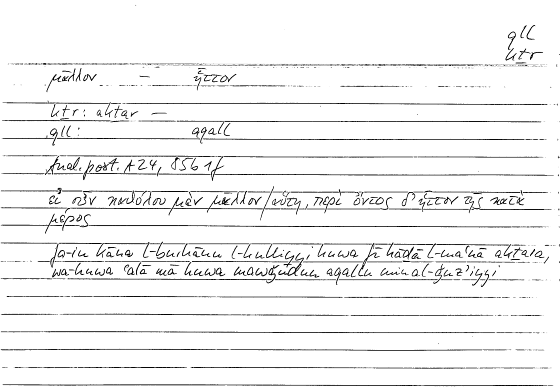 qll
kṯr
μᾶλλον – ἧττον
kṯr: akṯar –
qll: aqall
Anal. post. A 24, 85b 1f
εἰ οὖν καθόλου μὲν μᾶλλον/αὕτη, περὶ ὄντος δ' ἧττον τῆς κατὰ
μέρος
fa-in kāna l-burhānu l-kulliyyi huwa fī hāḏā l-ma'nā akṯara,
wa-huwa 'alā mā huwa mawǧūdun aqallu mina l-ǧuz'iyyi